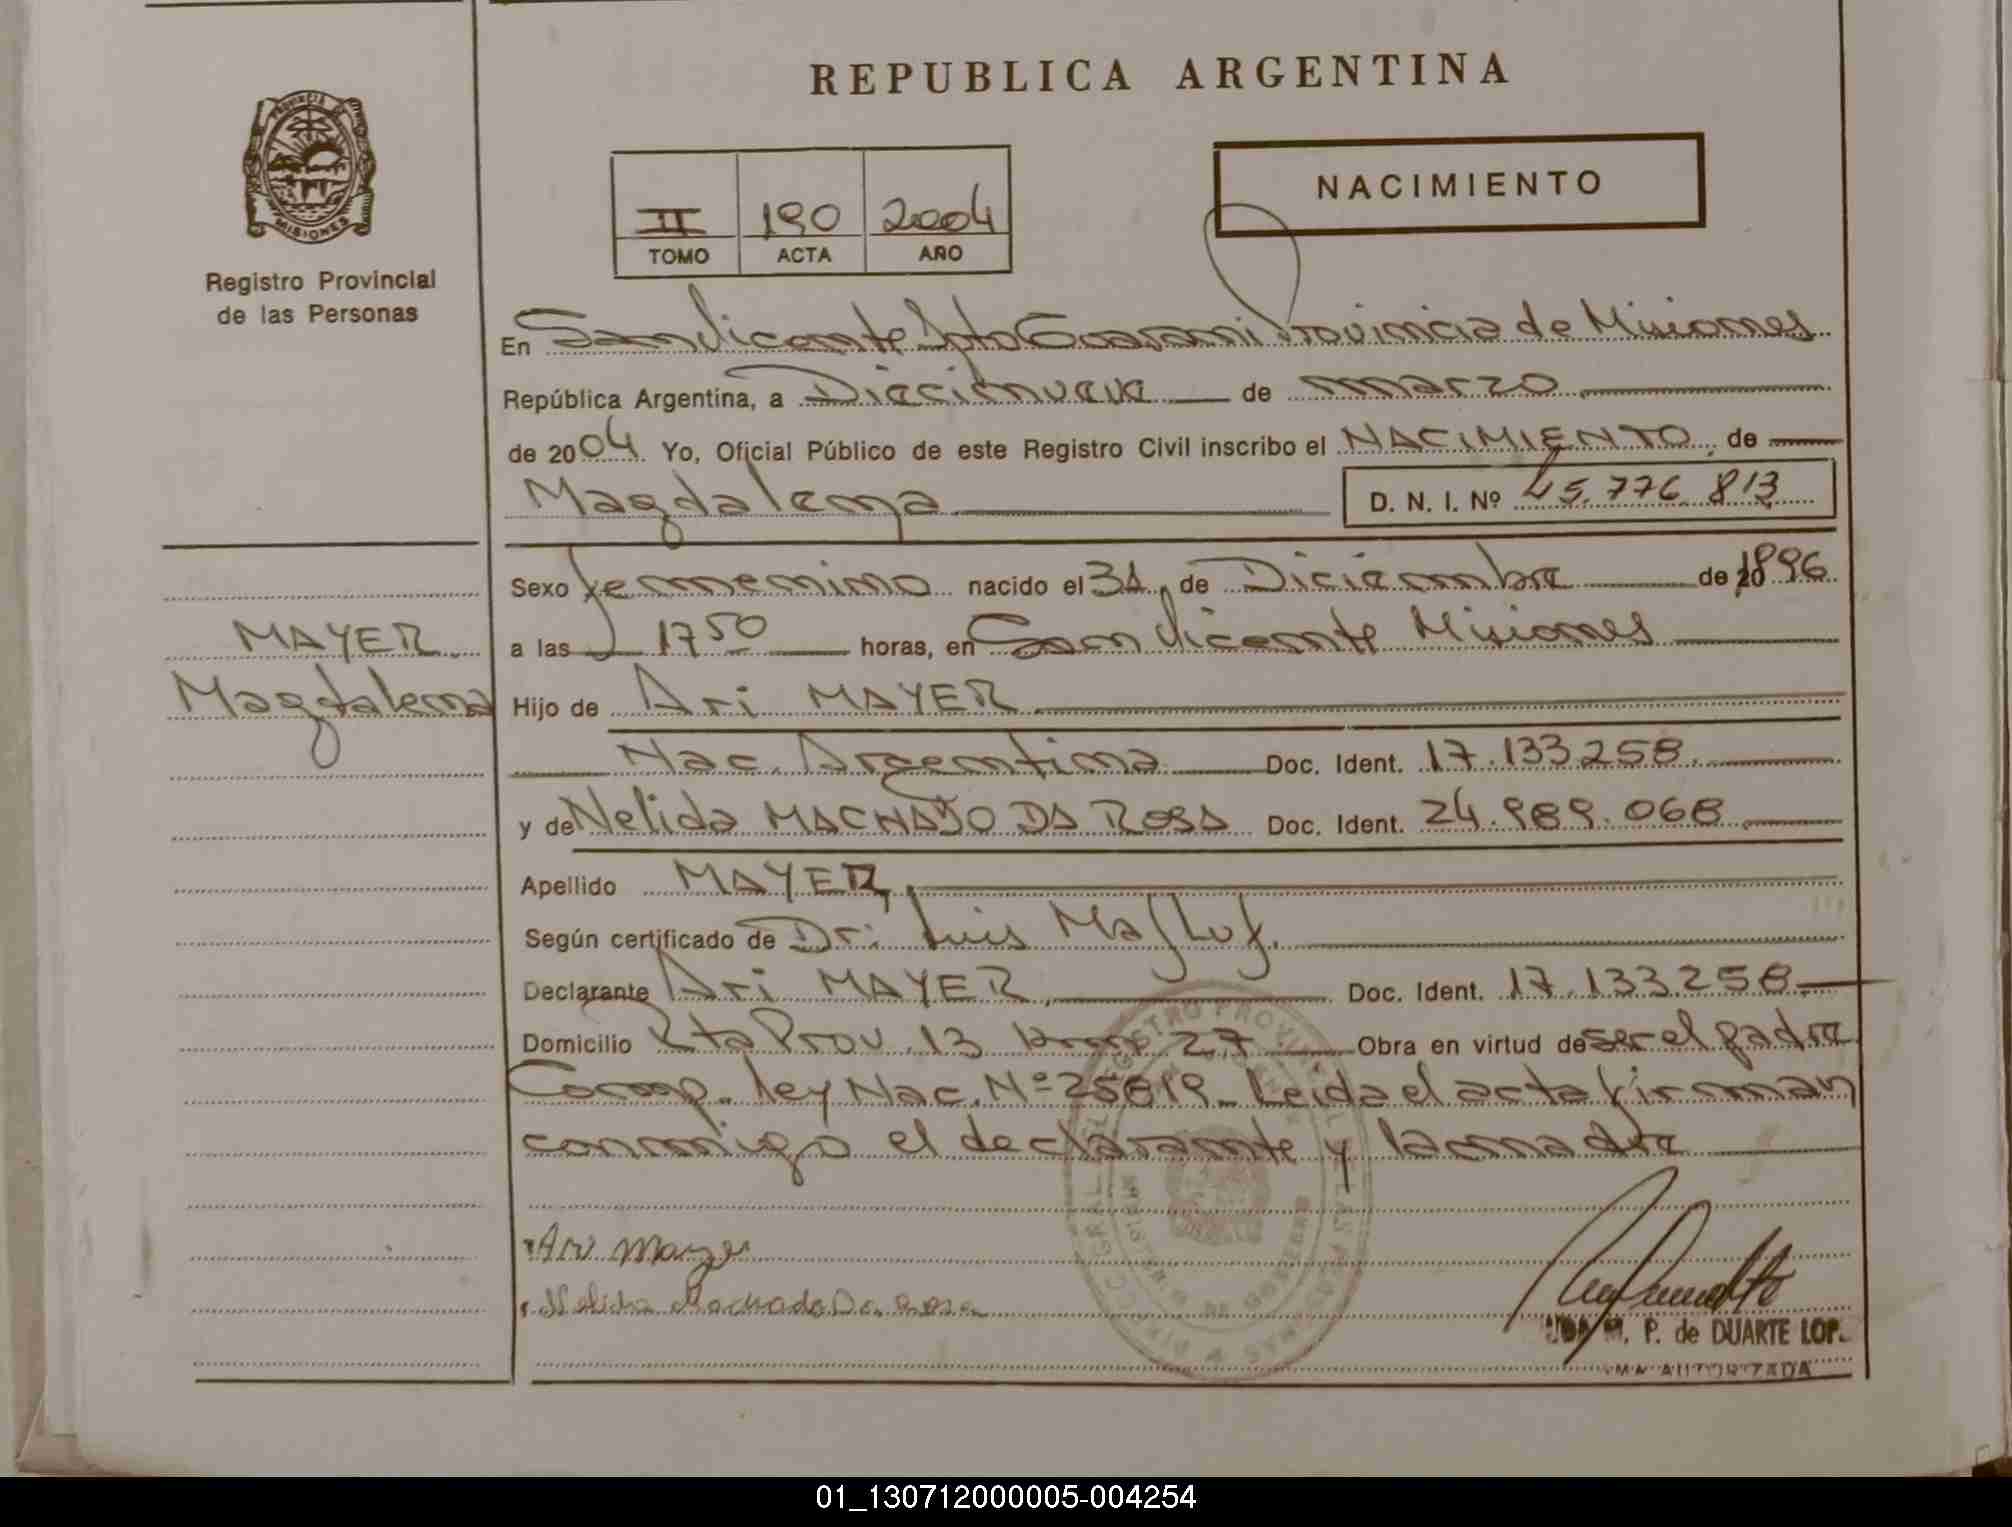 REPUBLICA ARGENTINA
PROVINCIA DE
MISIONES
Registro Provincial
de las Personas
II 190 2004
TOMO ACTA AÑO
NACIMIENTO
En San Vicente Dpto Guarani Provincia de Misiones
República Argentina, a Diecinueve de marzo
de 2004 Yo, Oficial Público de este Registro Civil inscribo el NACIMIENTO, de
Magdalena D. N. I. Nº 45.776.813
Sexo femenino nacido el 31, de Diciembre de 1996
MAYER
Magdalena
a las 17 50 horas, en San Vicente Misiones
Hijo de Ari MAYER
Nac. Argentina Doc. Ident. 17.133.258
y de Nelida MACHADO DA ROSA Doc. Ident. 24.989.068
Apellido MAYER
Según certificado de Dr: Luis Masluf.
Declarante Ari MAYER Doc. Ident. 17.133.258
Domicilio Rta Prov. 13 kmp 27 Obra en virtud de ser el padre
Coroop. ley Nac. Nº 25819. Leida el acta firman
conmigo el declarante y la madre
Ari Mayer
Nelida Machado Da Rosa
M. P. de DUARTE LOP.
MA AUTORIZADA
01_130712000005-004254